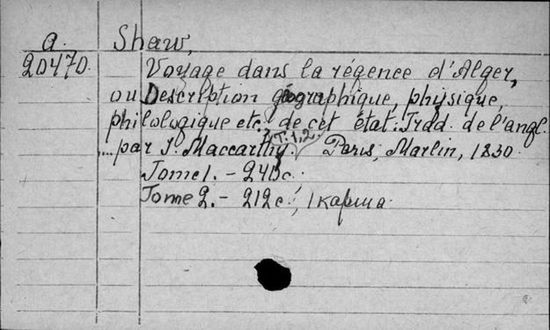 a. Shaw,
20470. Voyage dans la régence d'Alger,
ou Description géographique, physique,
philologique etc. de cet état. Trad. de l'angl.
.... par J. Maccarthy. T. 1, 2. Paris, Marlin, 1830.
Tome 1. - с.
Tome 2. - 212 с., 1 карта.